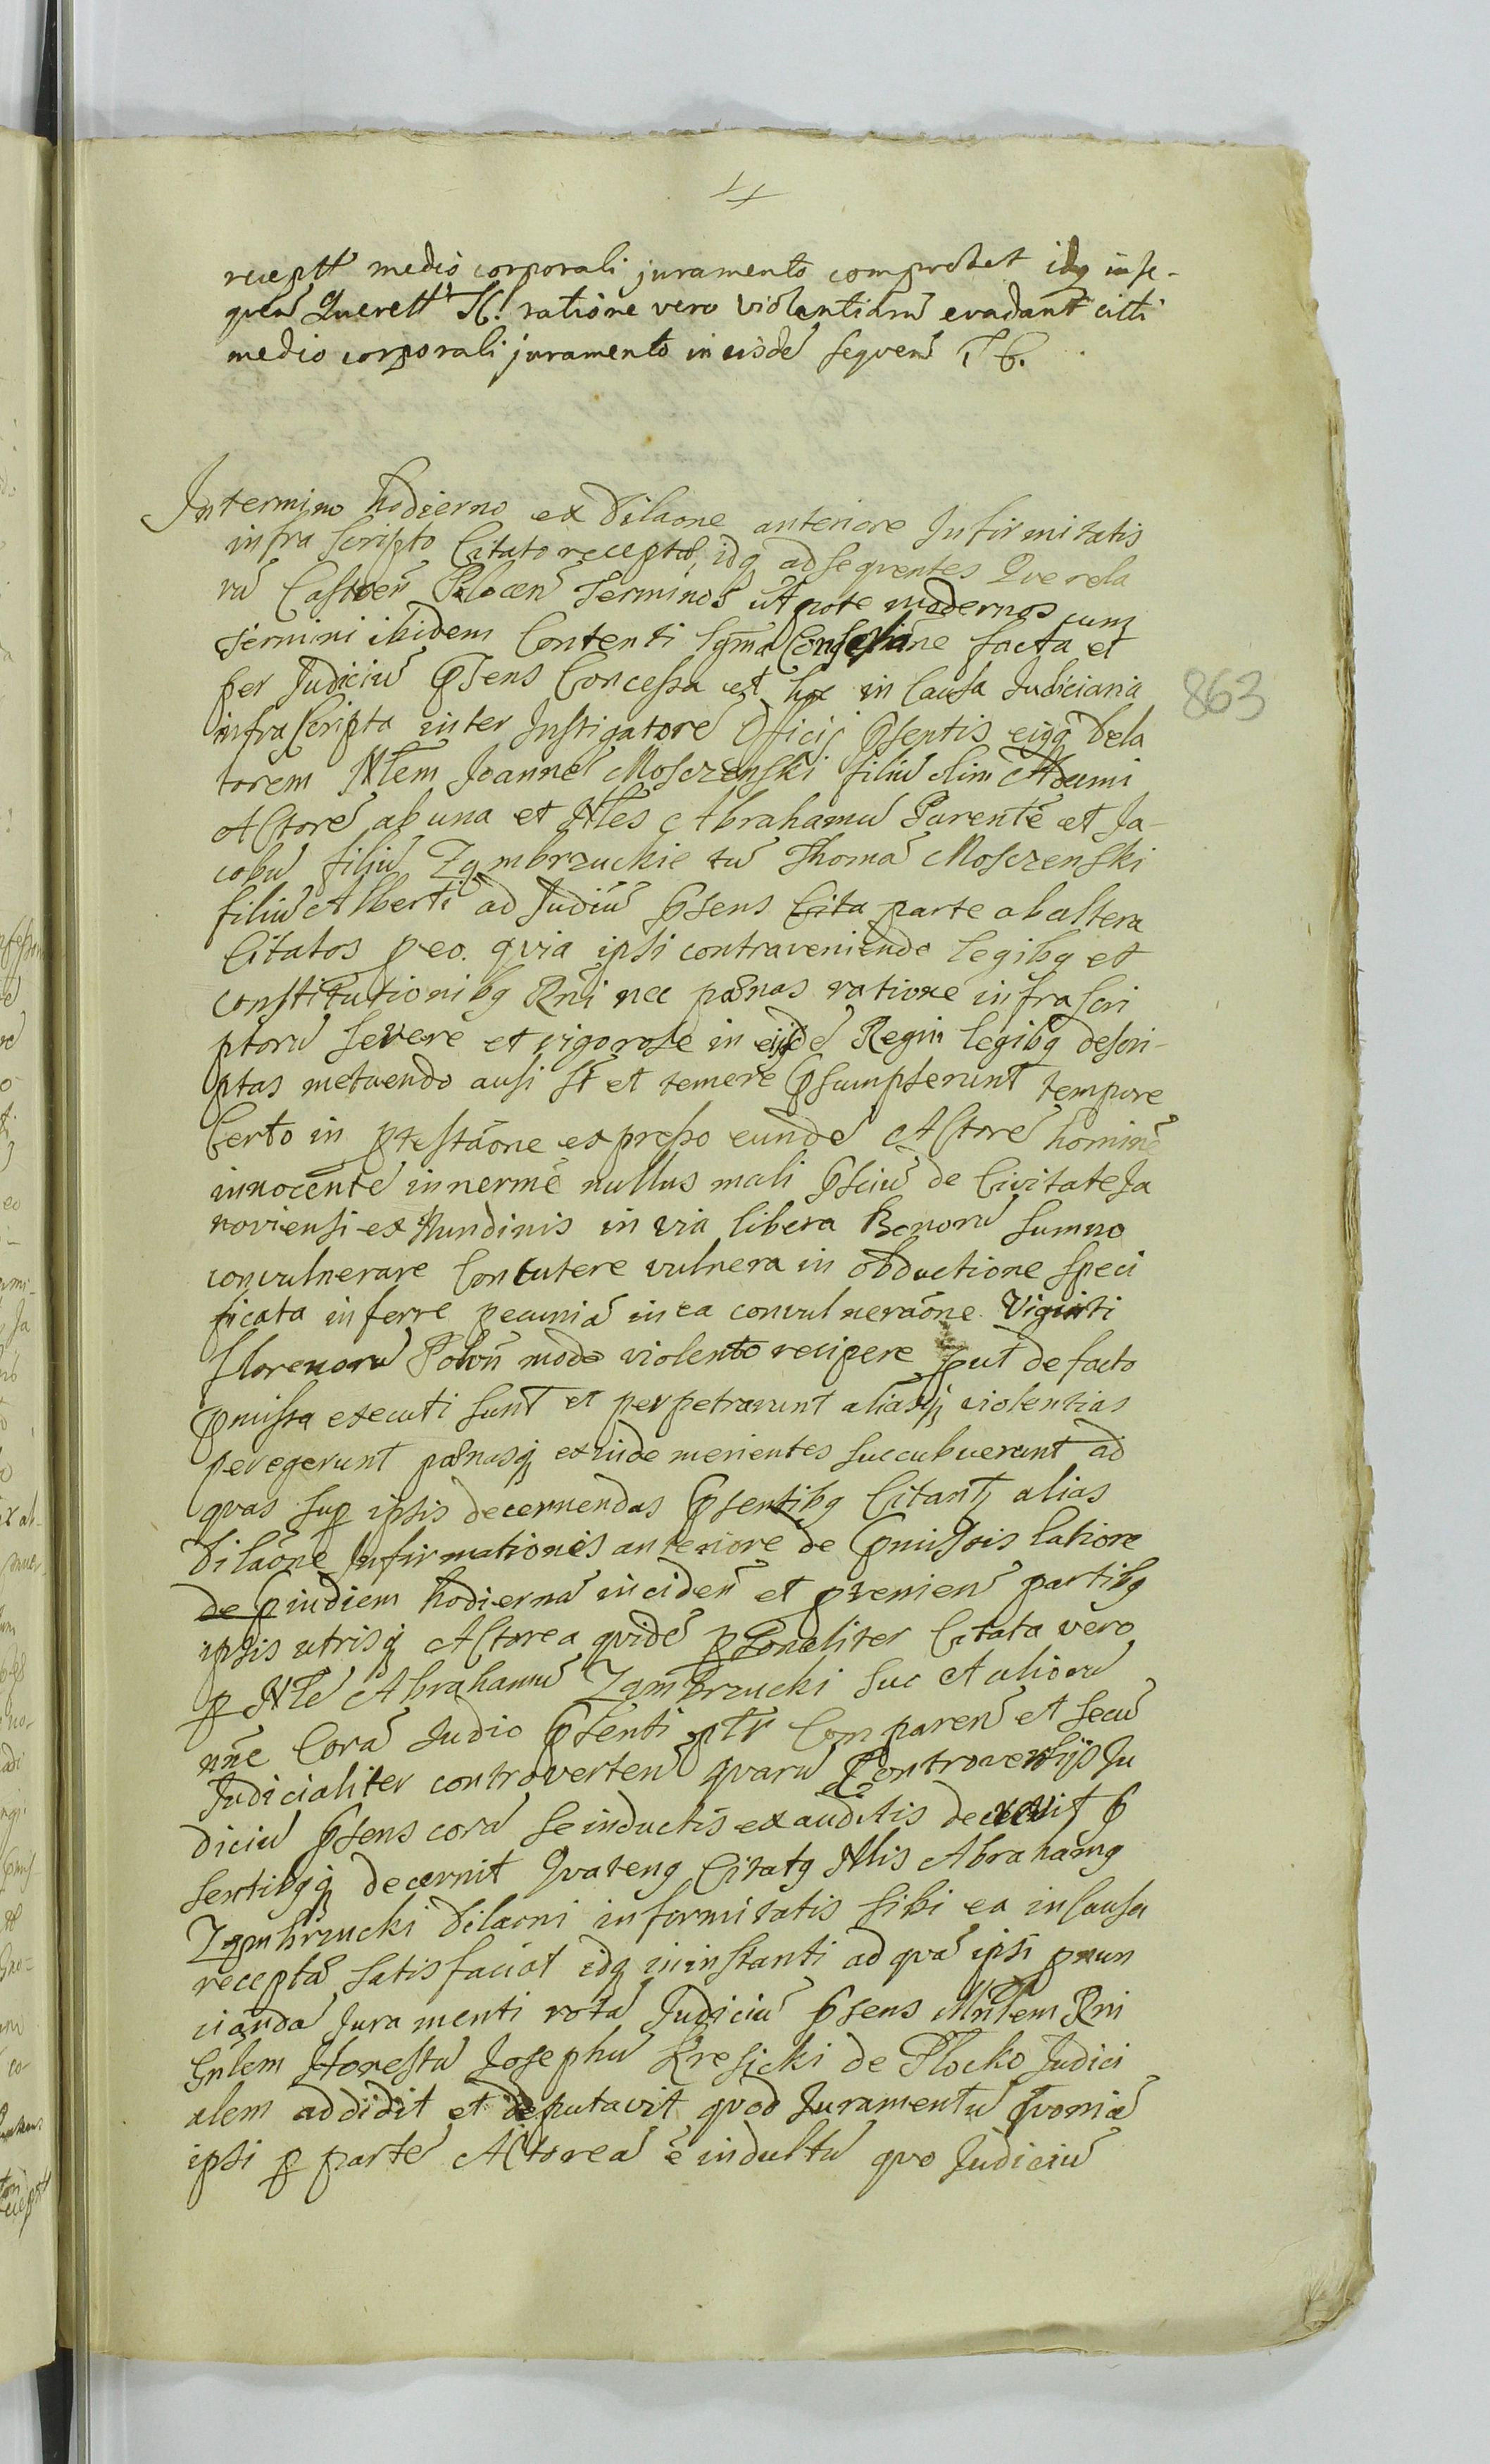 receptt medio corporali juramento comprobet idq inse-
quen Querell Tt. ratione vero violentiaru evadant citti
medio corporali juramento in iisde sequen Tt.
In termino hodierno ex dilaone anteriore Infirmitatis
infra scripto Citato recepta, idq ad sequentes Querela
ru Castren Plocen Terminos utpote modernos cum
Termini ibidem Contenti facta et
per Judiciu psens Concessa et hac in Causa Judiciaria
infrascripta inter Instigatore Officij psentis eiqq dela
torem Nlem Joanne Mosczenski filiu olim Adami
Actore ab una et Nles Abrahamu Parente et Ja-
cobu filiu Zembrzuckie tu Thoma Mosczenski
filiu Alberti ad Judiu psens Cita parte ab altera
Citatos peo. quia ipsi contraveniendo legibq et
constitutionibq Rni nec pænas ratione infrascri
ptoru severe et vigorose in eijsde Regni legibq descri-
ptas metuendo ausi st et temere psumpserunt tempore
Certo in ptestaone expresso eunde Actore homine
innocente innerme nullus mali psciu de Civitate Ja
noviensi ex Nundinis in via libera Bonoru Sumno
convulnerare Concutere vulnera in obductione speci
ficata inferre pecunia in ea convulneraone Viginti
Florenoru Polon modo violento recipere put de facto
pmissa executi sunt et perpetrarunt aliasq violentias
peregerunt pænasq exinde merientes succubuerunt ad
quas sup ipsis decernendas psentibq Citant, alias
dilaone Infirmationis anteriore de pmissis latiore
de p indiem hodierna inciden et pvenien partibq
ipsis utrisq Actorea quide psonaliter Citata vero
p Nle Abrahamu Zembrzucki suo et alioru
nne Cora Judio psenti ptr Comparen et secu
Judicialiter controverten quaru Controversijs Ju
diciu psens cora se inductis ex auditis decrevit p
sentibqq decernit Quatenq Citatq Nlis Abrahamq
Zembrzucki dilaoni infirmitatis sibi ea in Causa
recepta satisfaciat idq in instanti ad qua ipsi pnun
cianda Juramenti rota Judiciu psens Mnlem Rni
Gnlem Honestu Josephu Kresicki de Plocko Judici
alem addidit et deputavit quod Juramentu quonia
ipsi p parte Actorea e indultu quo Judiciu
863